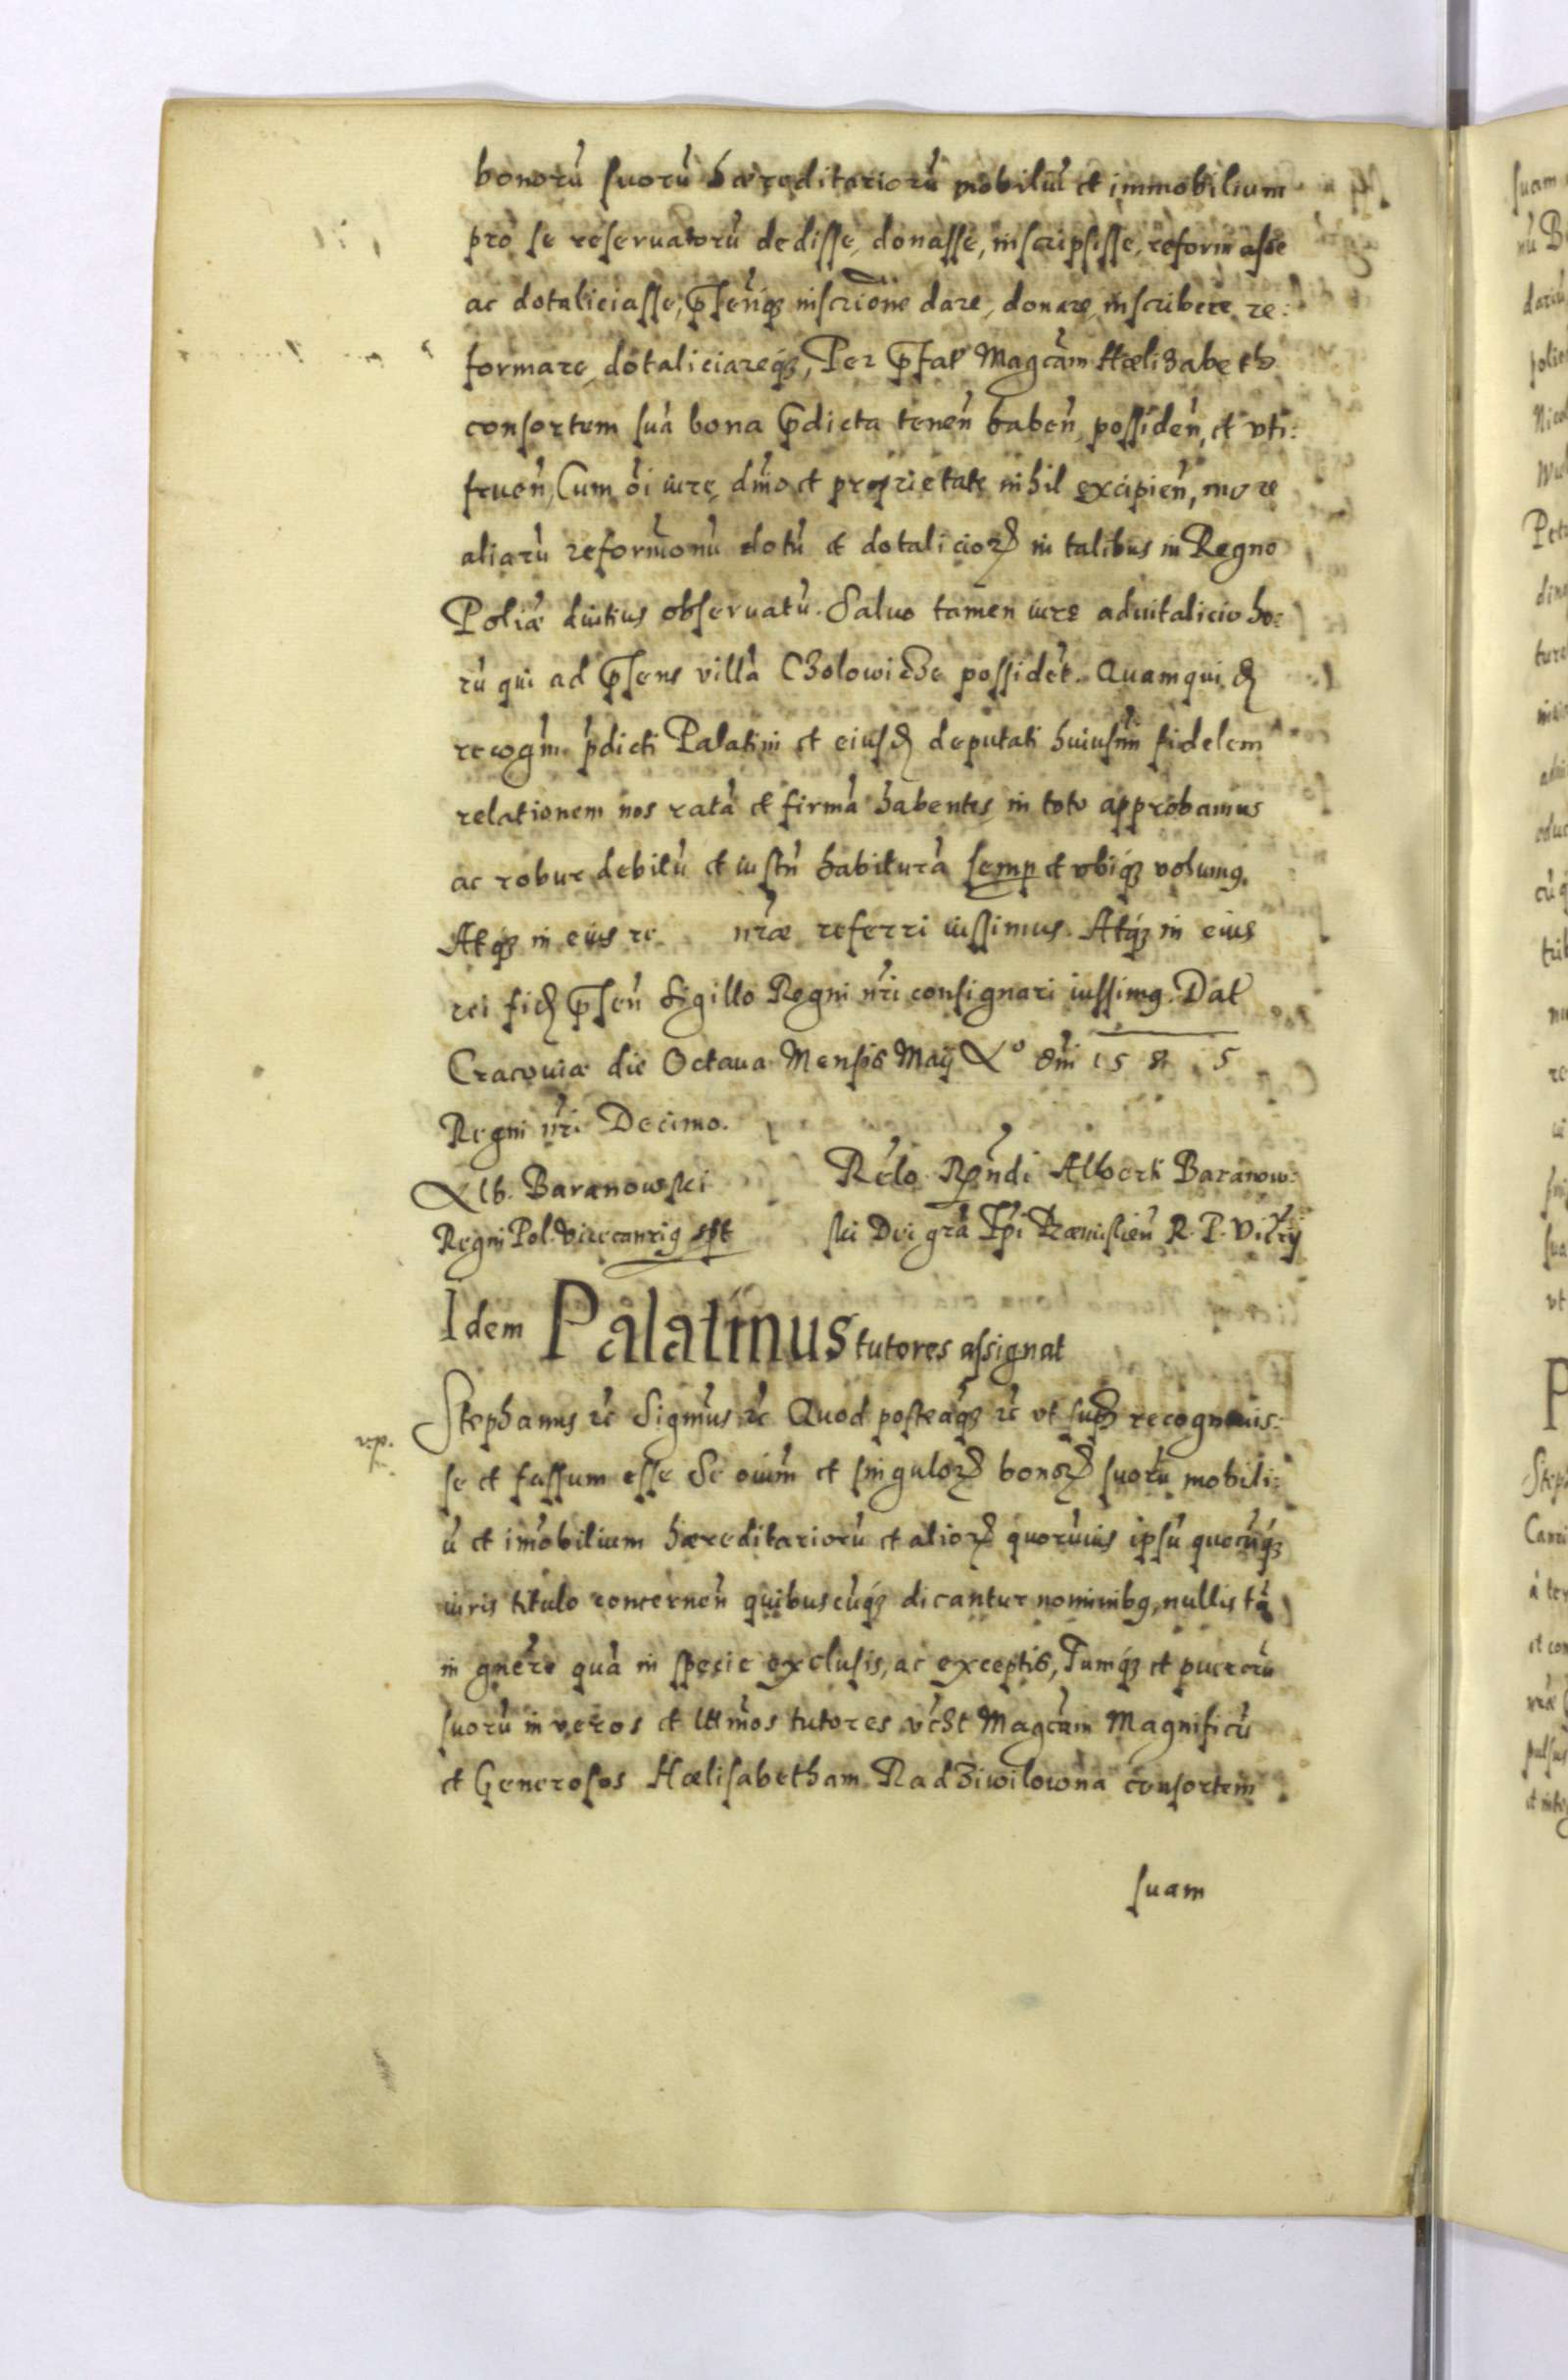 bonorũ suorũ hæreditariorũ mobiliũ et immobilium
pro se reseruatorũ dedisse, donasse, inscripsisse, reformasse
ac dotaliciasse, p̄senq́ꝫ inscrione dare, donare, inscribere re:
formare, dotaliciareq́ꝫ, Per p̄fat Magcam Hælizabeth
consortem suã bona p̄dicta teneñ habeñ possideñ, et vti:
frueñ, Cum oi iure, dmo et proprietate nihil excipieñ, more
aliarũ reformonũ dotũ et dotalicioꝝ in talibus in Regno
Poliæ diutius obseruatũ. Saluo tamen iure aduitalicio ho:
rũ qui ad p̄sens villã possidet. Quamquidꝫ
recogm p̄dicti Palatini et eiusdꝫ deputati huiusmi fidelem
relationem nos ratã et firmã habentes in toto approbamus
ac robur debitũ et iustũ habiturã semp et vbiq́ꝫ volumꝰ.
Atq́ꝫ in eius re nræ referri iussimus. Atq́ꝫ in eius
rei fidꝫ p̄señ Sigillo Regni nri consignari iussimꝰ. Dat
Cracouiæ die Octaua Mensis Maij Aº dni 15 8 5
Regni nri Decimo.
Alb. Baranowski
Regni Pol. Vicecancꝰ sst
Relo Rndi Alberti Baranow:
ski Dei gra Epi Præmislieñ R. P. Vicrij
Idem Palatinus tutores assignat
Stephanus rc Sigmus rc Quod posteaq́ꝫ rc vt supꝫ recognouis:
se et fassum esse Se oium et singuloꝝ bonoꝝ suorũ mobili:
ũ et imobilium hæreditariorũ et alioꝝ quoruuis ipsũ quocũq́ꝫ
iuris titulo concerneñ quibuscũq́ꝫ dicantur nominibꝰ, nullis tã
in gnere quã in specie exclusis, ac exceptis, Tumq́ꝫ et puerorũ
suorũ in veros et lttmos tutores vczt Magcam Magnificũ
et Generosos Hælisabetham Radziwilowna consortem
suam